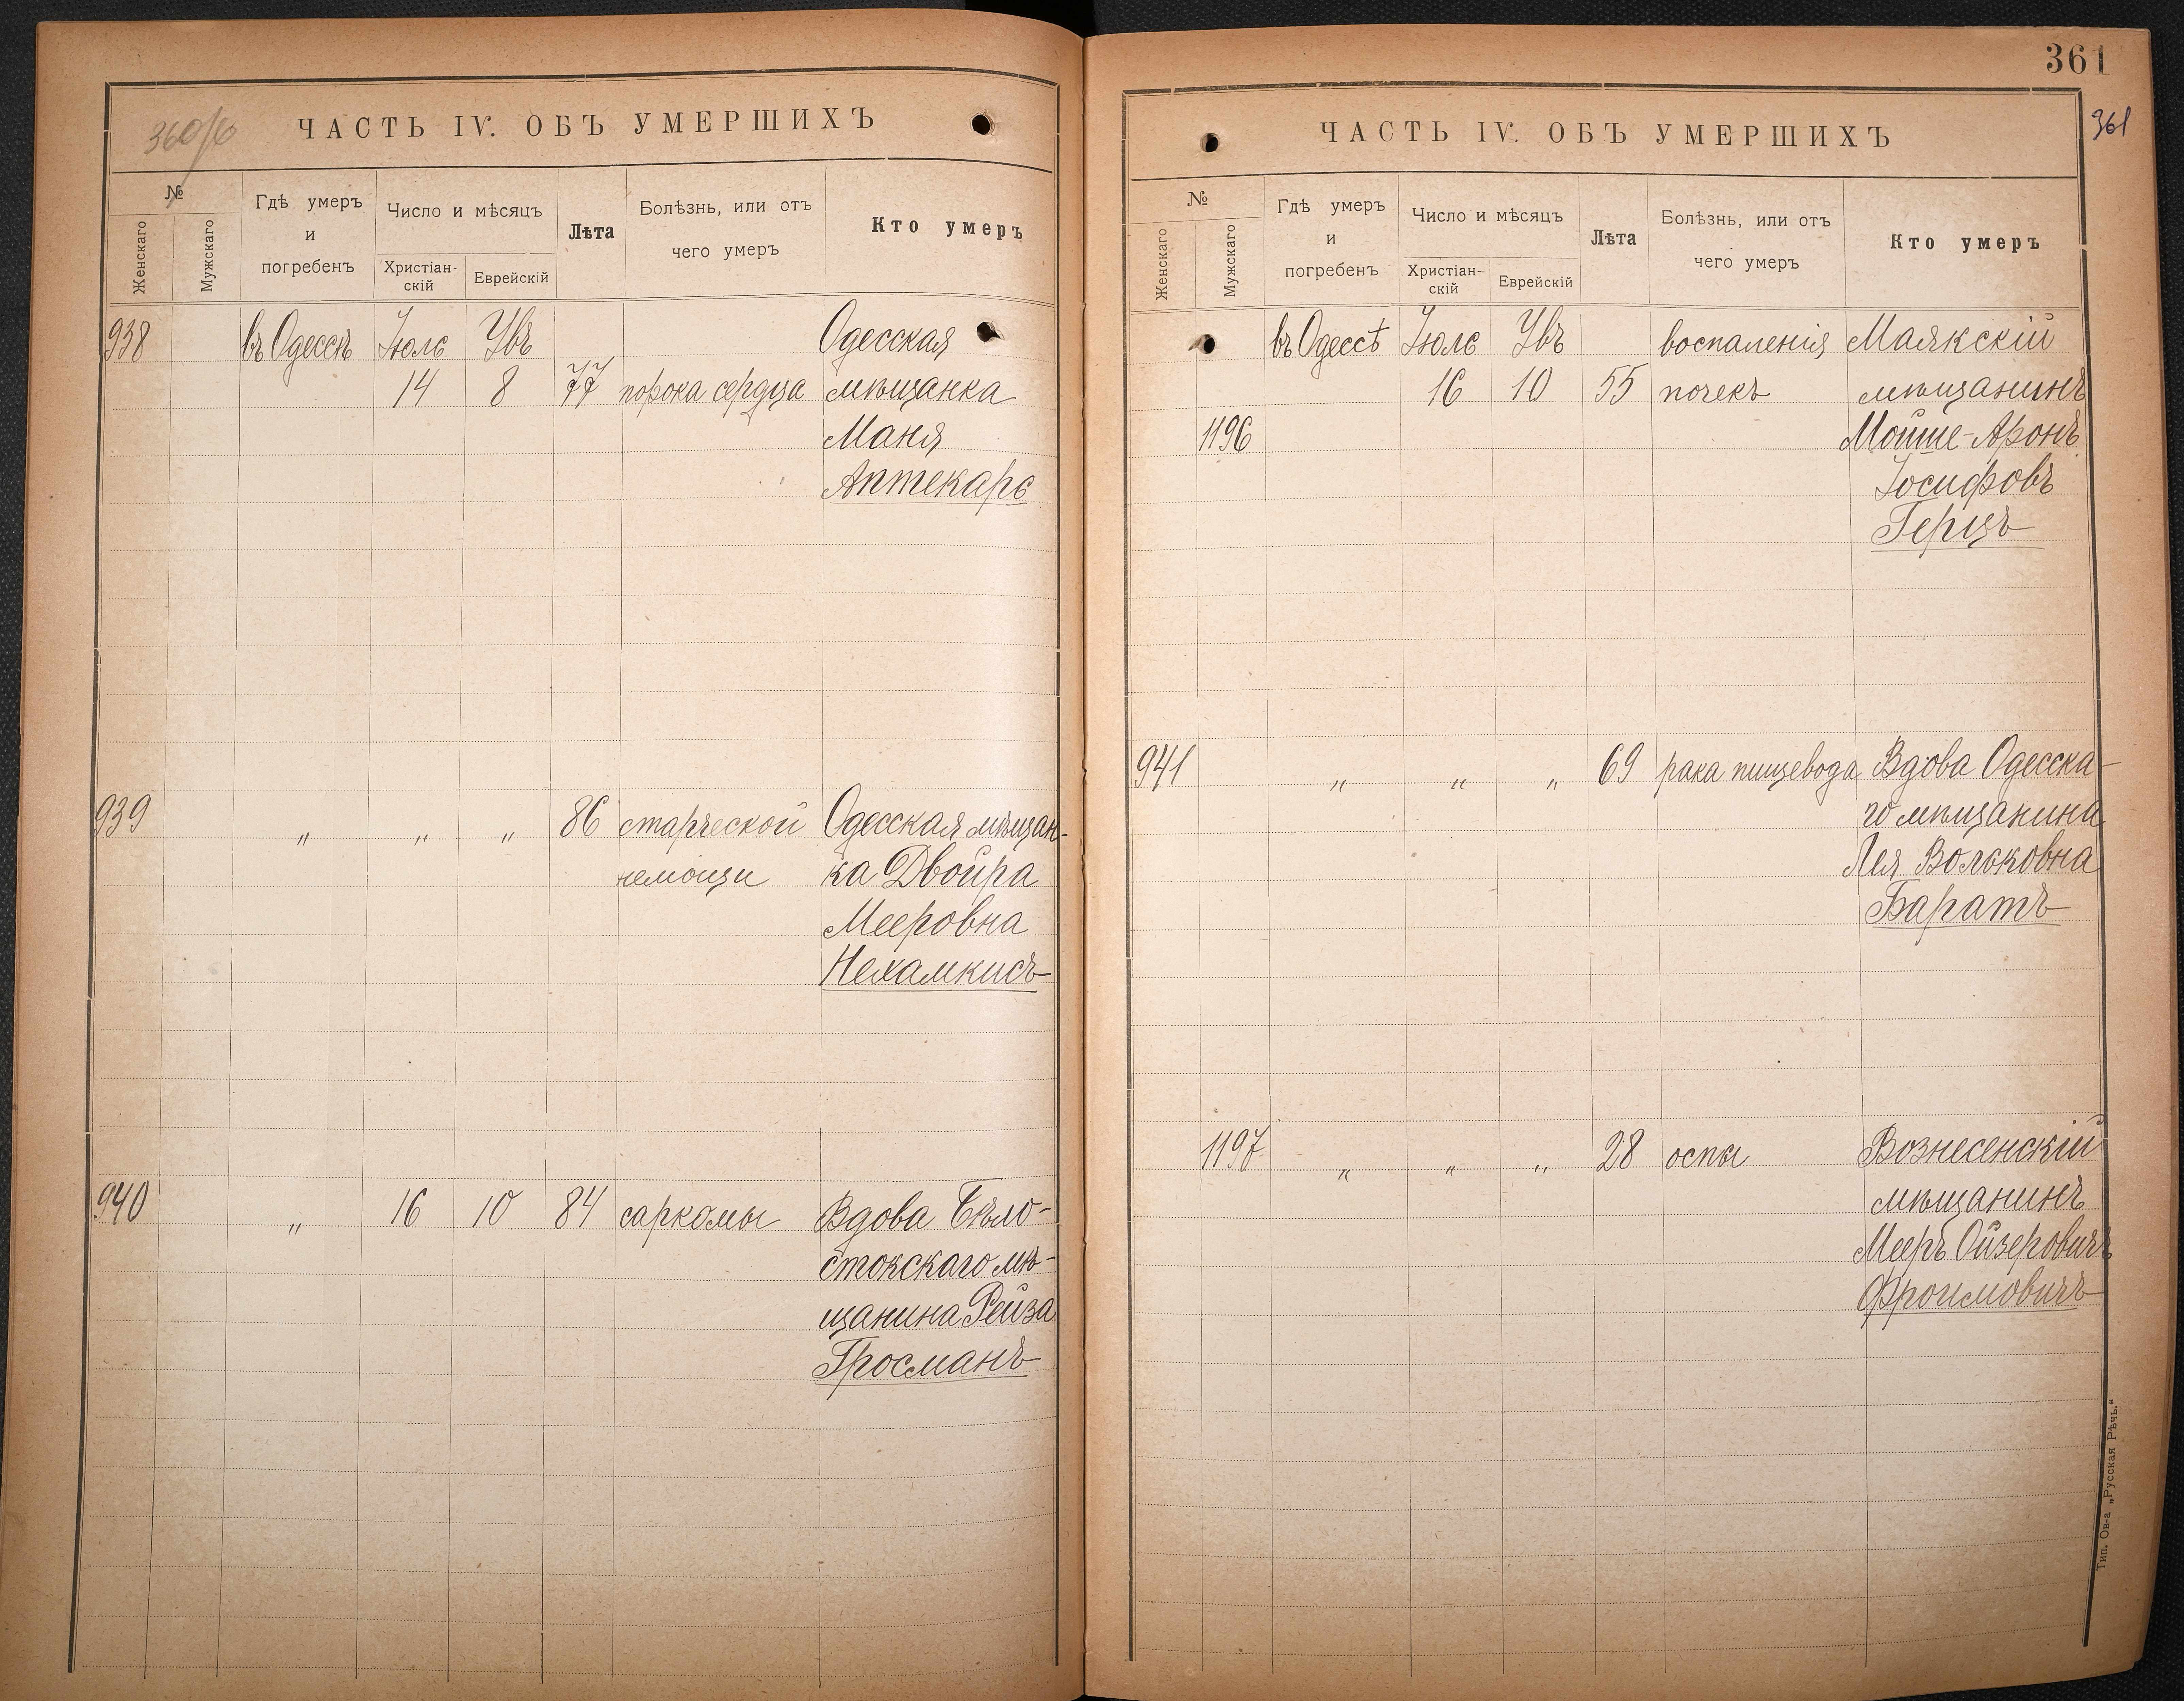 360/б
ЧАСТЬ IV. ОБЪ УМЕРШИХЪ
№
Женскаго
Мужскаго
Гдѣ умеръ
и
погребенъ
Число и мѣсяцъ
Христіан-
скій
Еврейскій
Лѣта
Болѣзнь, или отъ
чего умеръ
Кто умеръ
938 въ Одессѣ Іюль Увъ Одесская
14 8 77 порока сердца мѣщанка
Маня
Аптекарь
939 " " " 86 старческой Одесская мѣщан-
немощи ка Двойра
Мееровна
Нехамкисъ
940 " 16 10 84 саркомы Вдова Бѣло-
стокскаго мѣ-
щанина Рейза
Гросманъ
361
361
ЧАСТЬ IV. ОБЪ УМЕРШИХЪ
№
Женскаго
Мужскаго
Гдѣ умеръ
и
погребенъ
Число и мѣсяцъ
Христіан-
скій
Еврейскій
Лѣта
Болѣзнь, или отъ
чего умеръ
Кто умеръ
въ Одессѣ Іюль Увъ воспаленія Маякскій
16 10 55 почекъ мѣщанинъ
1196 Мойше-Аронъ
Іосифовъ
Герцъ
941 " " " 69 рака пищевода Вдова Одесска-
го мѣщанина
Лея Вольковна
Баратъ
1197 " " " 28 оспы Вознесенскій
мѣщанинъ
Мееръ Ойзеровичъ
Фроимовичъ
Тип. Ов-а „Русская Рѣчь."